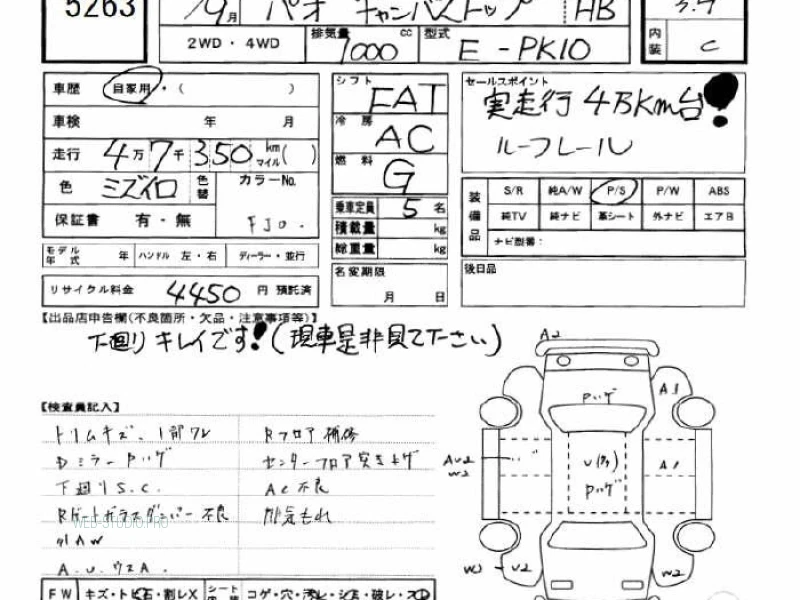 5263
9月 パオ キャンバストップ HB
2WD・4WD 排気量 1000 cc 型式 E-PK10
内装 C
車歴 自家用・( )
シフト FAT
セールスポイント
実走行 4万km台!
ルーフレール
車検 年 月
冷房 AC
走行 4万7千350 km マイル( )
燃料 G
色 ミズイロ 色替 カラーNo. FJ0.
乗車定員 5名
積載量 kg
総重量 kg
保証書 有・無
装備品 S/R 純A/W P/S P/W ABS
純TV 純ナビ 革シート 外ナビ エアB
ナビ型番:
モデル年式 年 ハンドル 左・右 ディーラー・並行
名変期限 月 日
後日品
リサイクル料金 4450 円 預託済
【出品店申告欄(不良箇所・欠品・注意事項等)】
下廻りキレイです!(現車是非見て下さい)
【検査員記入】
トリムキズ、1部ワレ
Rフロア補修
Dミラーサビ
センターフロア突き上げ
下廻りS.C.
AC不良
Rゲートガラスダンパー不良
排気もれ
WEB-STUDIO.PRO
外AW
A.U.ウスA.
A2
A1
A1
U(多)
W2
W3 U2
W2
FW キズ・トビ石・割レX シート コゲ・穴・汚レ・シミ・破レ・スレ